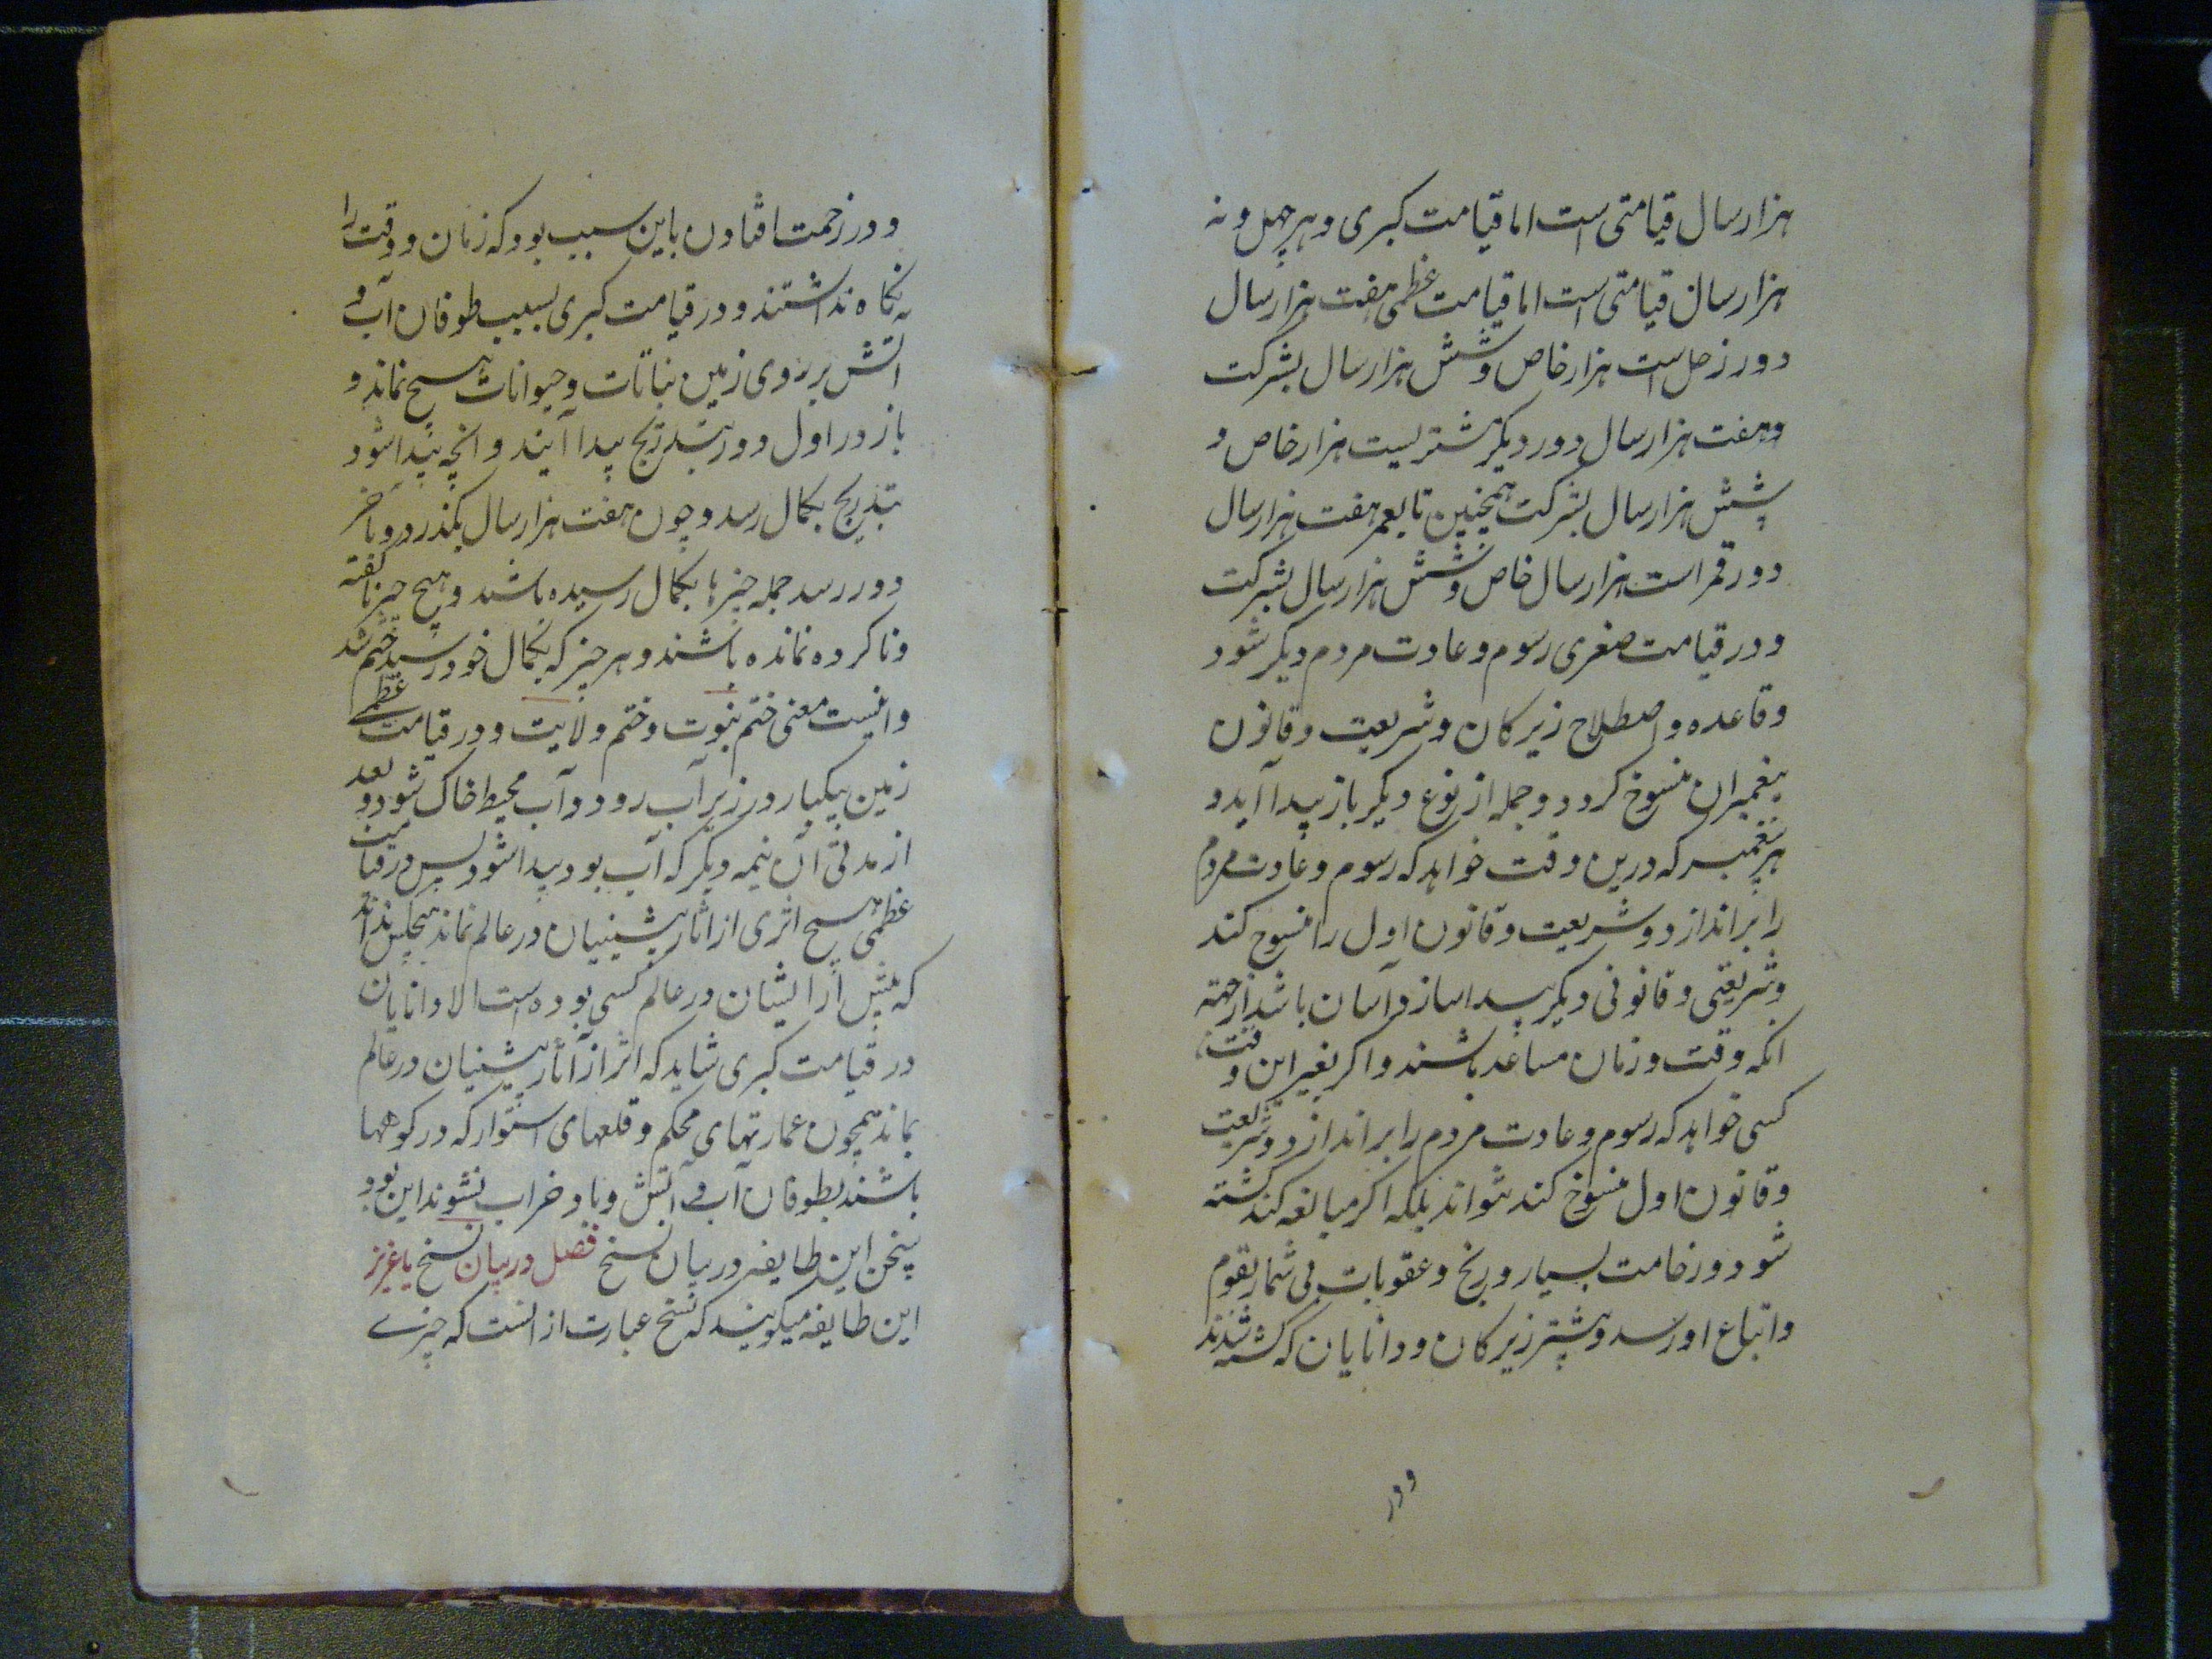 هزار سال قیامتی است اما قیامت کبری و هر چهل و نه
هزار سال قیامتی است اما قیامت عظمی هفت هزار سال
دور زحل است هزار خاص و شش هزار سال بشرکت
و هفت هزار سال دور دیکر مشتریست هزار خاص و
شش هزار سال بشرکت همچنین تا بقمر هفت هزار سال
دور قمر است هزار سال خاص و شش هزار سال بشرکت
و در قیامت صغری رسوم و عادت مردم دیکر شود
و قاعده و اصطلاح زیرکان و شریعت و قانون
پیغمبران منسوخ کردد و جمله از نوع دیکر باز پیدا آید و
هر پیغمبر که درین وقت خواهد که رسوم و عادت مردم
را براندازد و شریعت و قانون اول را منسوخ کند
و شریعتی و قانونی دیکر پیدا سازد آسان باشد از جهته
انکه وقت و زمان مساعد باشند و اکر بغیر این وقت
کسی خواهد که رسوم و عادت مردم را براندازد و شریعت
و قانون اول منسوخ کند نتواند بلکه اکر مبالغه کند کشته
شود و وخامت بسیار و رنج و عقوبات بی شمار بقوم
و اتباع او رسد و بیشتر زیرکان و دانایان که کشته شدند
و در
و در زحمت افتادن باین سبب بود که زمان و وقت را
نکاه نداشتند و در قیامت کبری بسبب طوفان آب و
اتش بر روی زمین نباتات و حیوانات هیچ نماند و
باز در اول دور بتدریج پیدا آیند و انچه پیدا شود
بتدریج بکمال رسد و چون هفت هزار سال بکذرد و باخر
دور رسد جمله چیزها بکمال رسیده باشند و هیچ چیز ناکفته
و ناکرده نمانده باشند و هر چیز که بکمال خود رسید ختم شد
و اینست معنی ختم نبوت و ختم ولایت و در قیامت عظمی
زمین بیکبار در زیر آب رود و آب محیط خاک شود و بعد
از مدتی آن نیمه دیکر که آب بود پیدا شود پس در قیامت
عظمی هیچ اثری از اثار پیشینیان در عالم نماند هیچکس نداند
که پیش از ایشان در عالم کسی بوده است الا دانایان
در قیامت کبری شاید که اثر از آثار پیشینیان در عالم
بماند همچون عمارتهای محکم و قلعهای استوار که در کوهها
باشند بطوفان آب و آتش و باد خراب نشوند این بود
سخن این طایفه در بیان نسخ فصل در بیان نسخ یا عزیز
این طایفه میکویند که نسخ عبارت از انست که چیزے